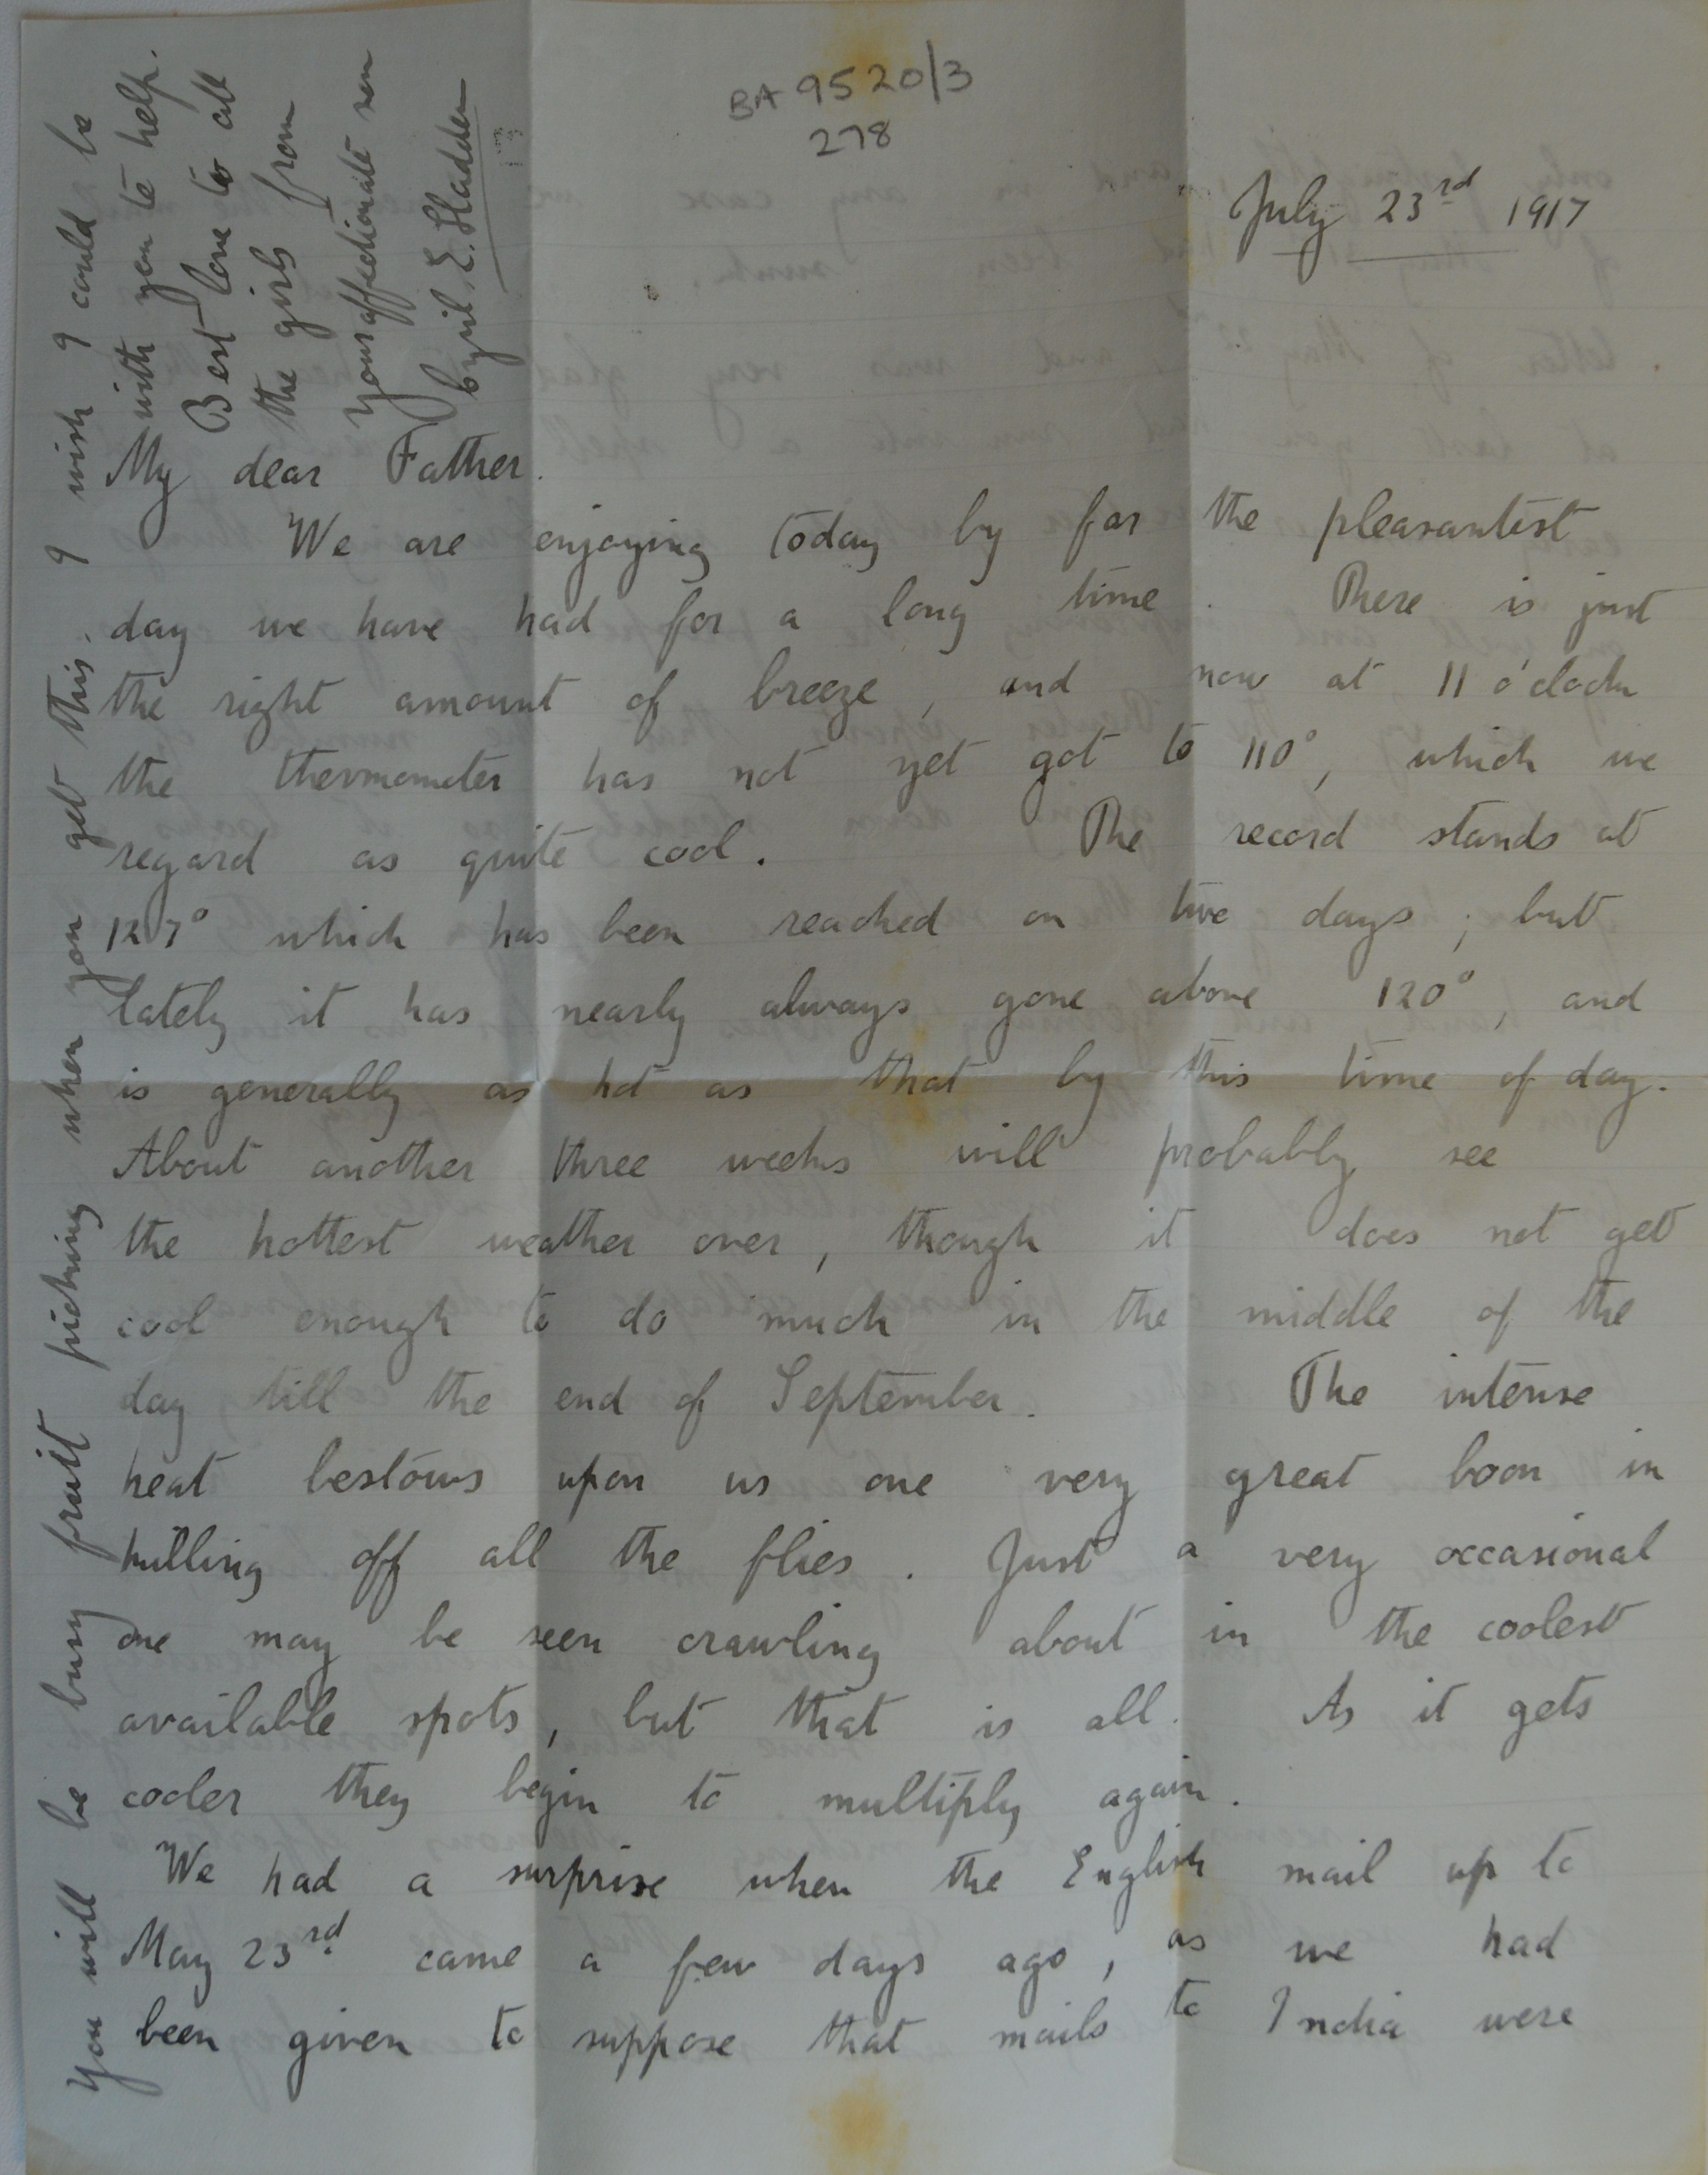 BA 9520/3
278
July 23rd 1917
My dear Father.
We are enjoying today by far the pleasantest
day we have had for a long time. There is just
the right amount of breeze, and now at 11 o'clock
the thermometer has not yet got to 110°, which we
regard as quite cool. The record stands at
127° which has been reached on two days; but
lately it has nearly always gone above 120°, and
is generally as hot as that by this time of day.
About another three weeks will probably see
the hottest weather over, though it does not get
cool enough to do much in the middle of the
day till the end of September. The intense
heat bestows upon us one very great boon in
killing off all the flies. Just a very occasional
one may be seen crawling about in the coolest
available spots, but that is all. As it gets
cooler they begin to multiply again.
We had a surprise when the English mail up to
May 23rd came a few days ago, as we had
been given to suppose that mails to India were
You will be busy fruit picking when you get this. I wish I could be
with you to help.
Best love to all
the girls from
Your affectionate son
Cyril. E. Sladden